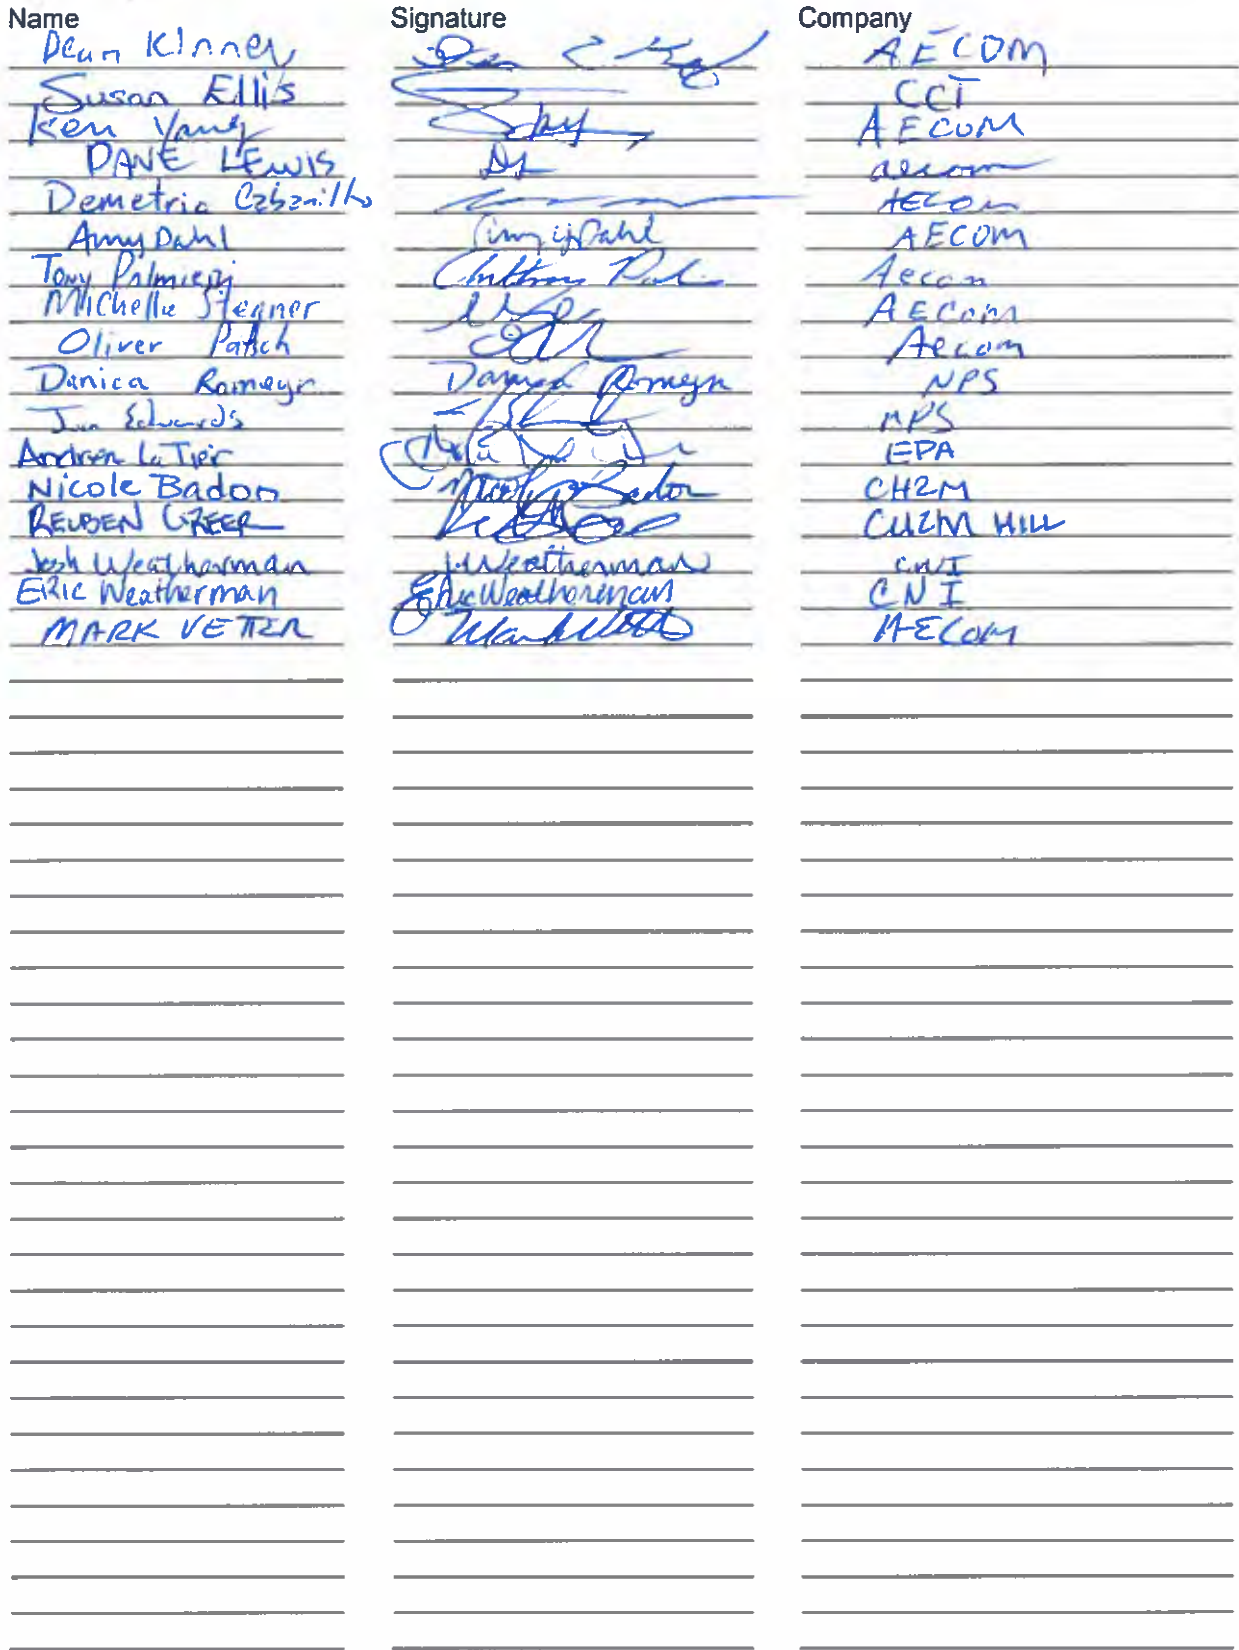 Name Signature Company
Dean Kinney AECOM
Susan Ellis CCI
Ken Vang AECOM
DANE LEWIS DL aecom
Demetrio Cabanillo AECOM
Amy Dahl Amy y Dahl AECOM
Tony Palmieri Aecom
Michelle Stegner AECOM
Oliver Patch Aecom
Danica Romeyn Danica Romeyn NPS
Edwards NPS
Andrea LaTier EPA
Nicole Badon Nicole Badon CH2M
REUBEN GREER CH2M HILL
Josh Weatherman JWeatherman CNI
ERIC Weatherman Eric Weatherman CNI
MARK VETTER AECOM